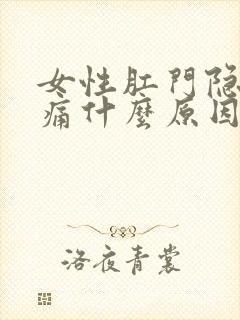 女性肛門隐
痛什麼原因
洛夜青裳